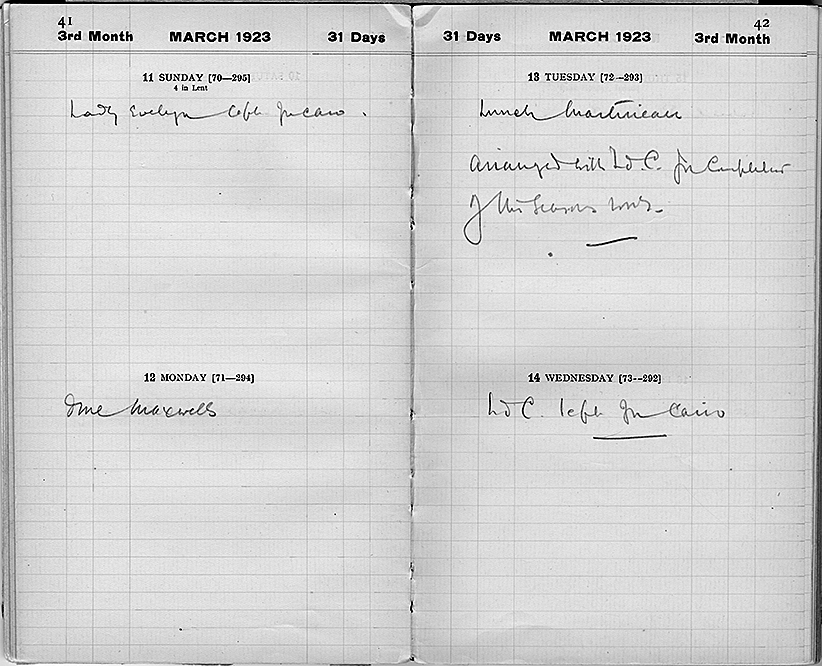 41
3rd Month MARCH 1923 31 Days
11 SUNDAY [70—295]
4 in Lent
Lady Evelyn left for Cairo.
12 MONDAY [71—294]
Dine Maxwells
42
31 Days MARCH 1923 3rd Month
13 TUESDAY [72—293]
Lunch Martineau
arranged with Ld. C. for Completion
of this Seasons work.
14 WEDNESDAY [73—292]
Ld C. left for Cairo